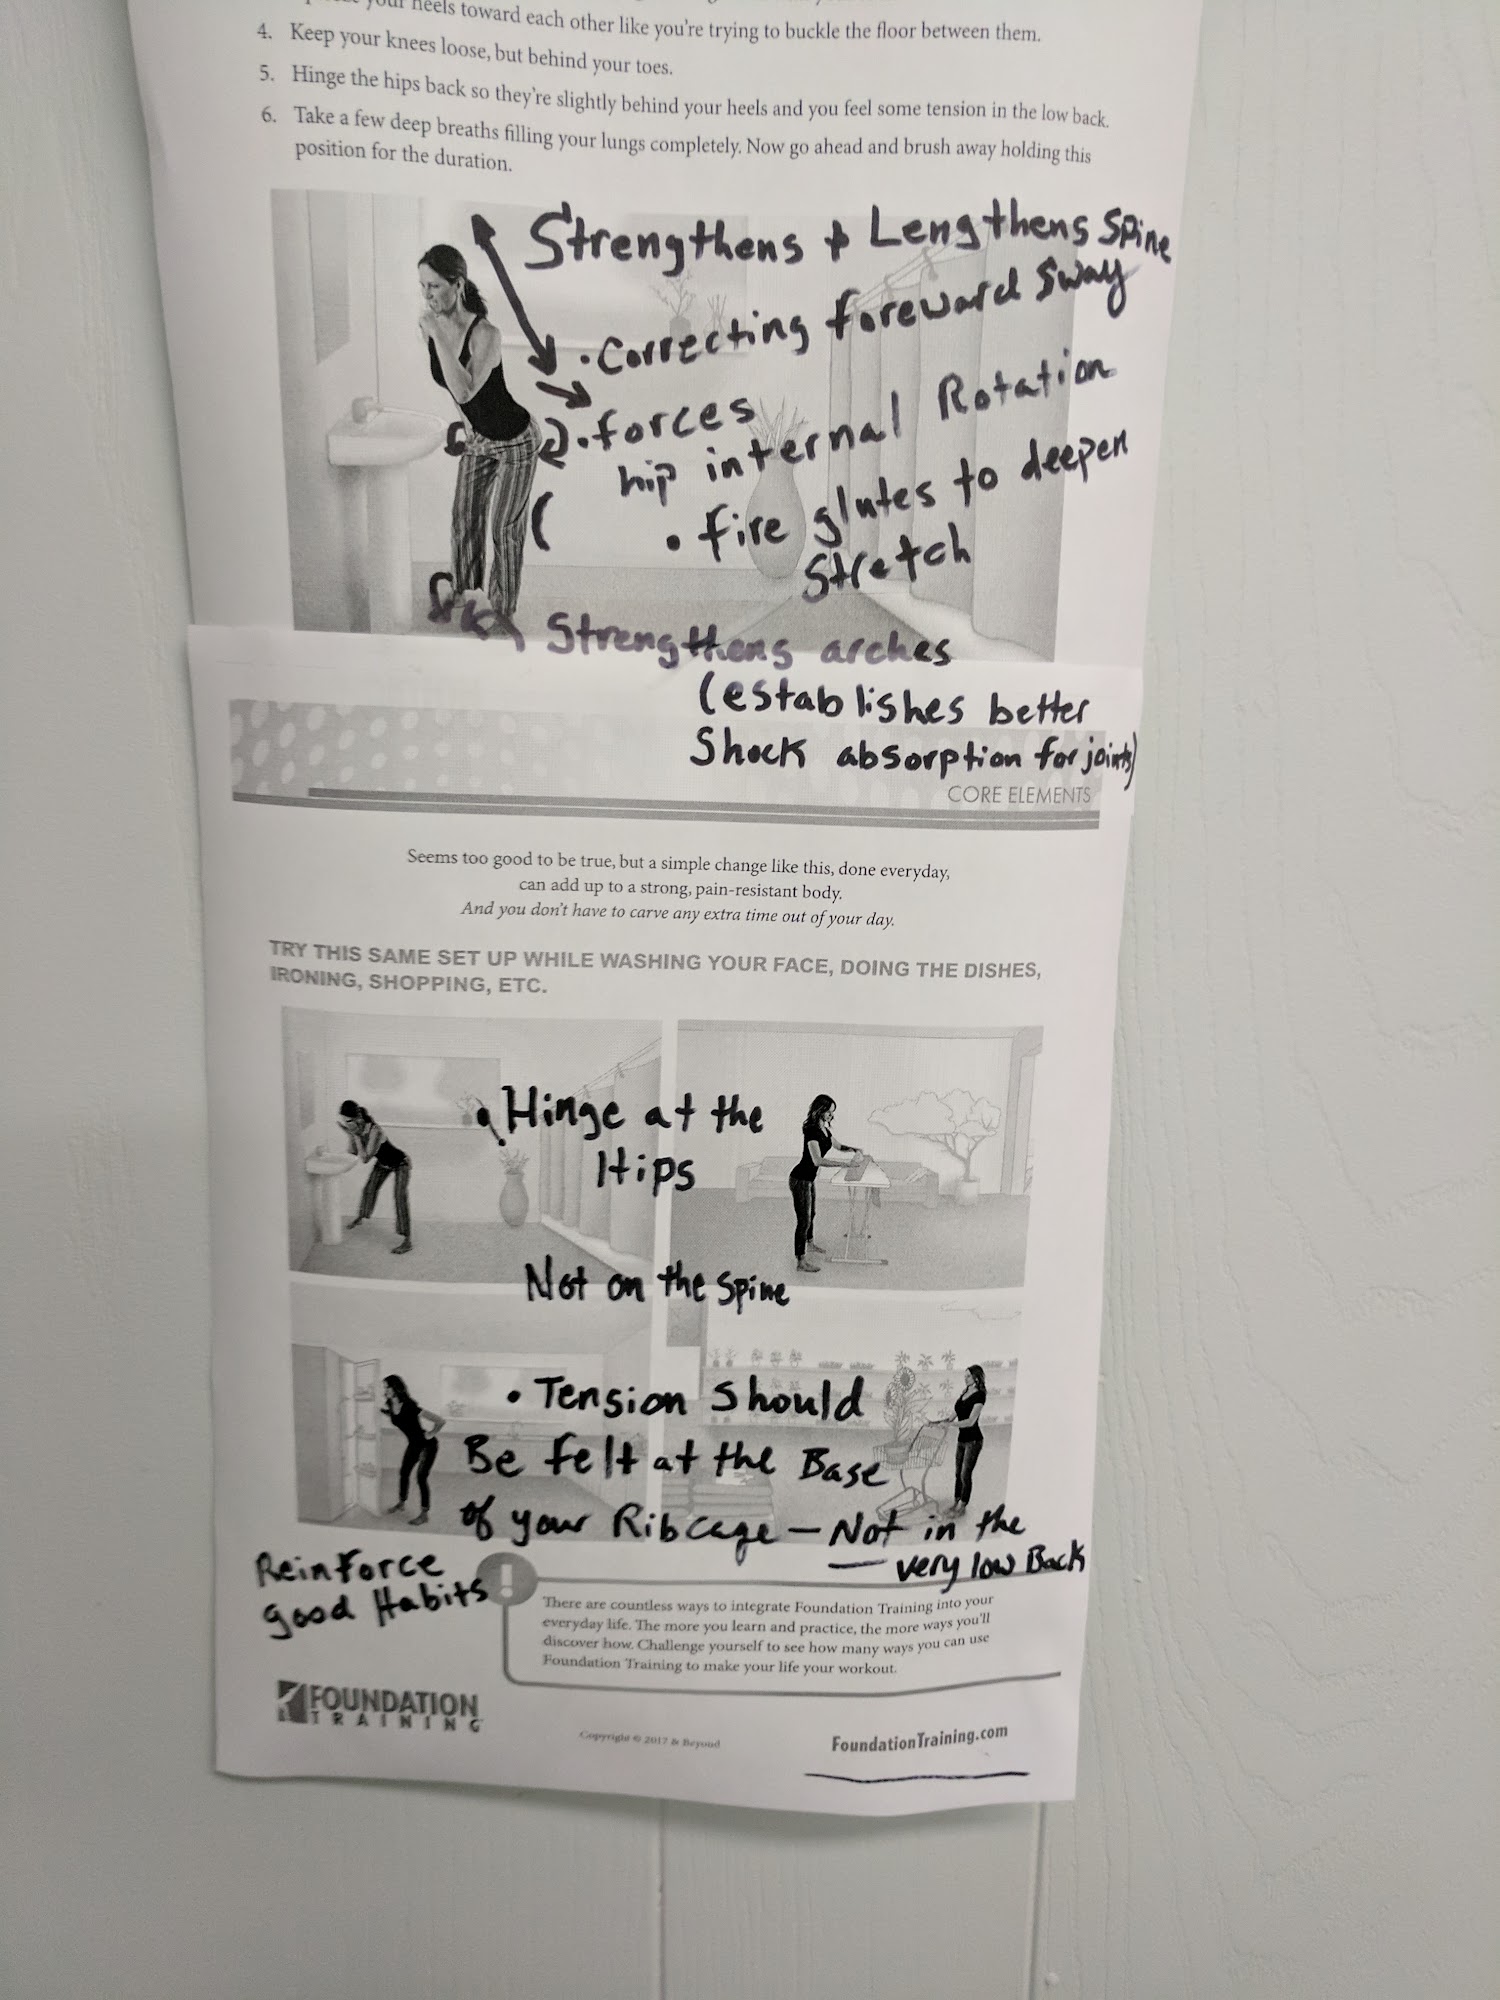 your heels toward each other like you're trying to buckle the floor between them.
4. Keep your knees loose, but behind your toes.
5. Hinge the hips back so they're slightly behind your heels and you feel some tension in the low back.
6. Take a few deep breaths filling your lungs completely. Now go ahead and brush away holding this
position for the duration.
Strengthens + Lengthens Spine
• Correcting foreward Sway
• forces
hip internal Rotation
• fire glutes to deepen
Stretch
Strengthens arches
(establishes better
Shock absorption for joints)
CORE ELEMENTS
Seems too good to be true, but a simple change like this, done everyday,
can add up to a strong, pain-resistant body.
And you don't have to carve any extra time out of your day.
TRY THIS SAME SET UP WHILE WASHING YOUR FACE, DOING THE DISHES,
IRONING, SHOPPING, ETC.
• Hinge at the
Hips
Not on the Spine
• Tension Should
Be felt at the Base
of your Ribcage — Not in the
very low Back
Reinforce
good Habits
!
There are countless ways to integrate Foundation Training into your
everyday life. The more you learn and practice, the more ways you'll
discover how. Challenge yourself to see how many ways you can use
Foundation Training to make your life your workout.
FOUNDATION
TRAINING
Copyright © 2017 & Beyond
FoundationTraining.com